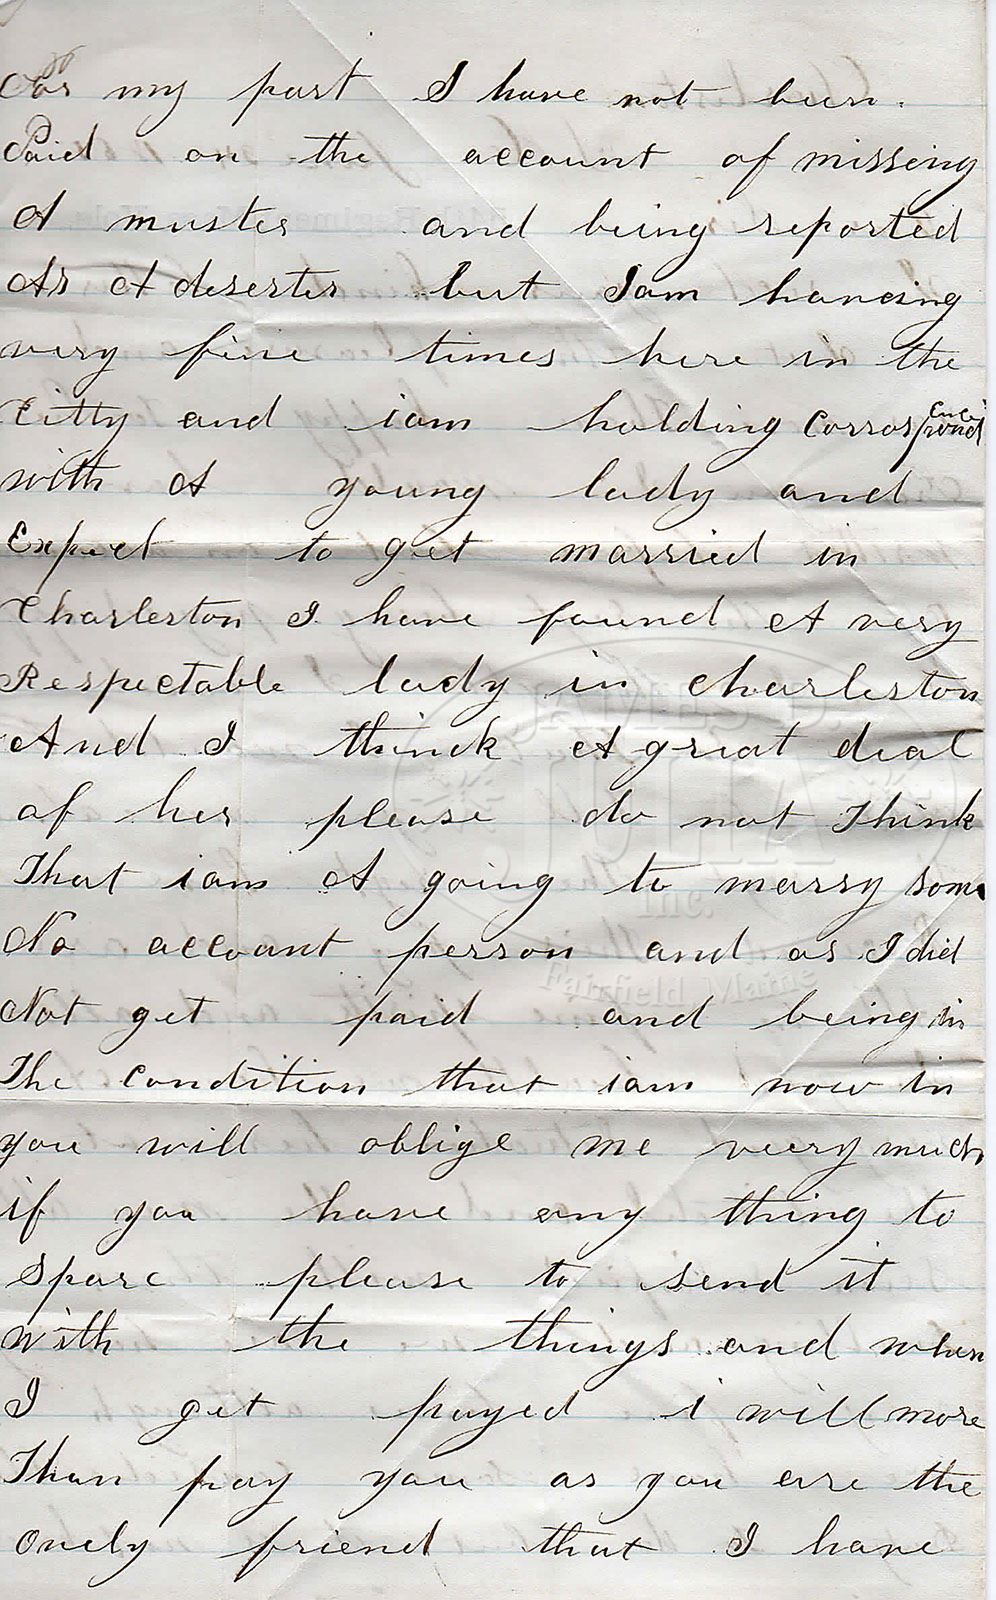 For my part I have not been
Paid on the account of missing
A muster and being reported
As A deserter but I am haveing
very fine times here in the
Citty and iam holding Corrospondence
with A young lady and
Expect to get married in
Charleston I have found A very
Respectable lady in charleston
And I thinck A great deal
of her please do not Think
That iam A going to marry some
No account person and as I did
Not get paid and being in
The condition that iam now in
you will oblige me veery much
if you have any thing to
Spare please to send it
With the things and when
I get payed i will more
Than pay you as you are the
Onely friend that I have
JAMES D
JULIA
Inc.
Fairfield Maine